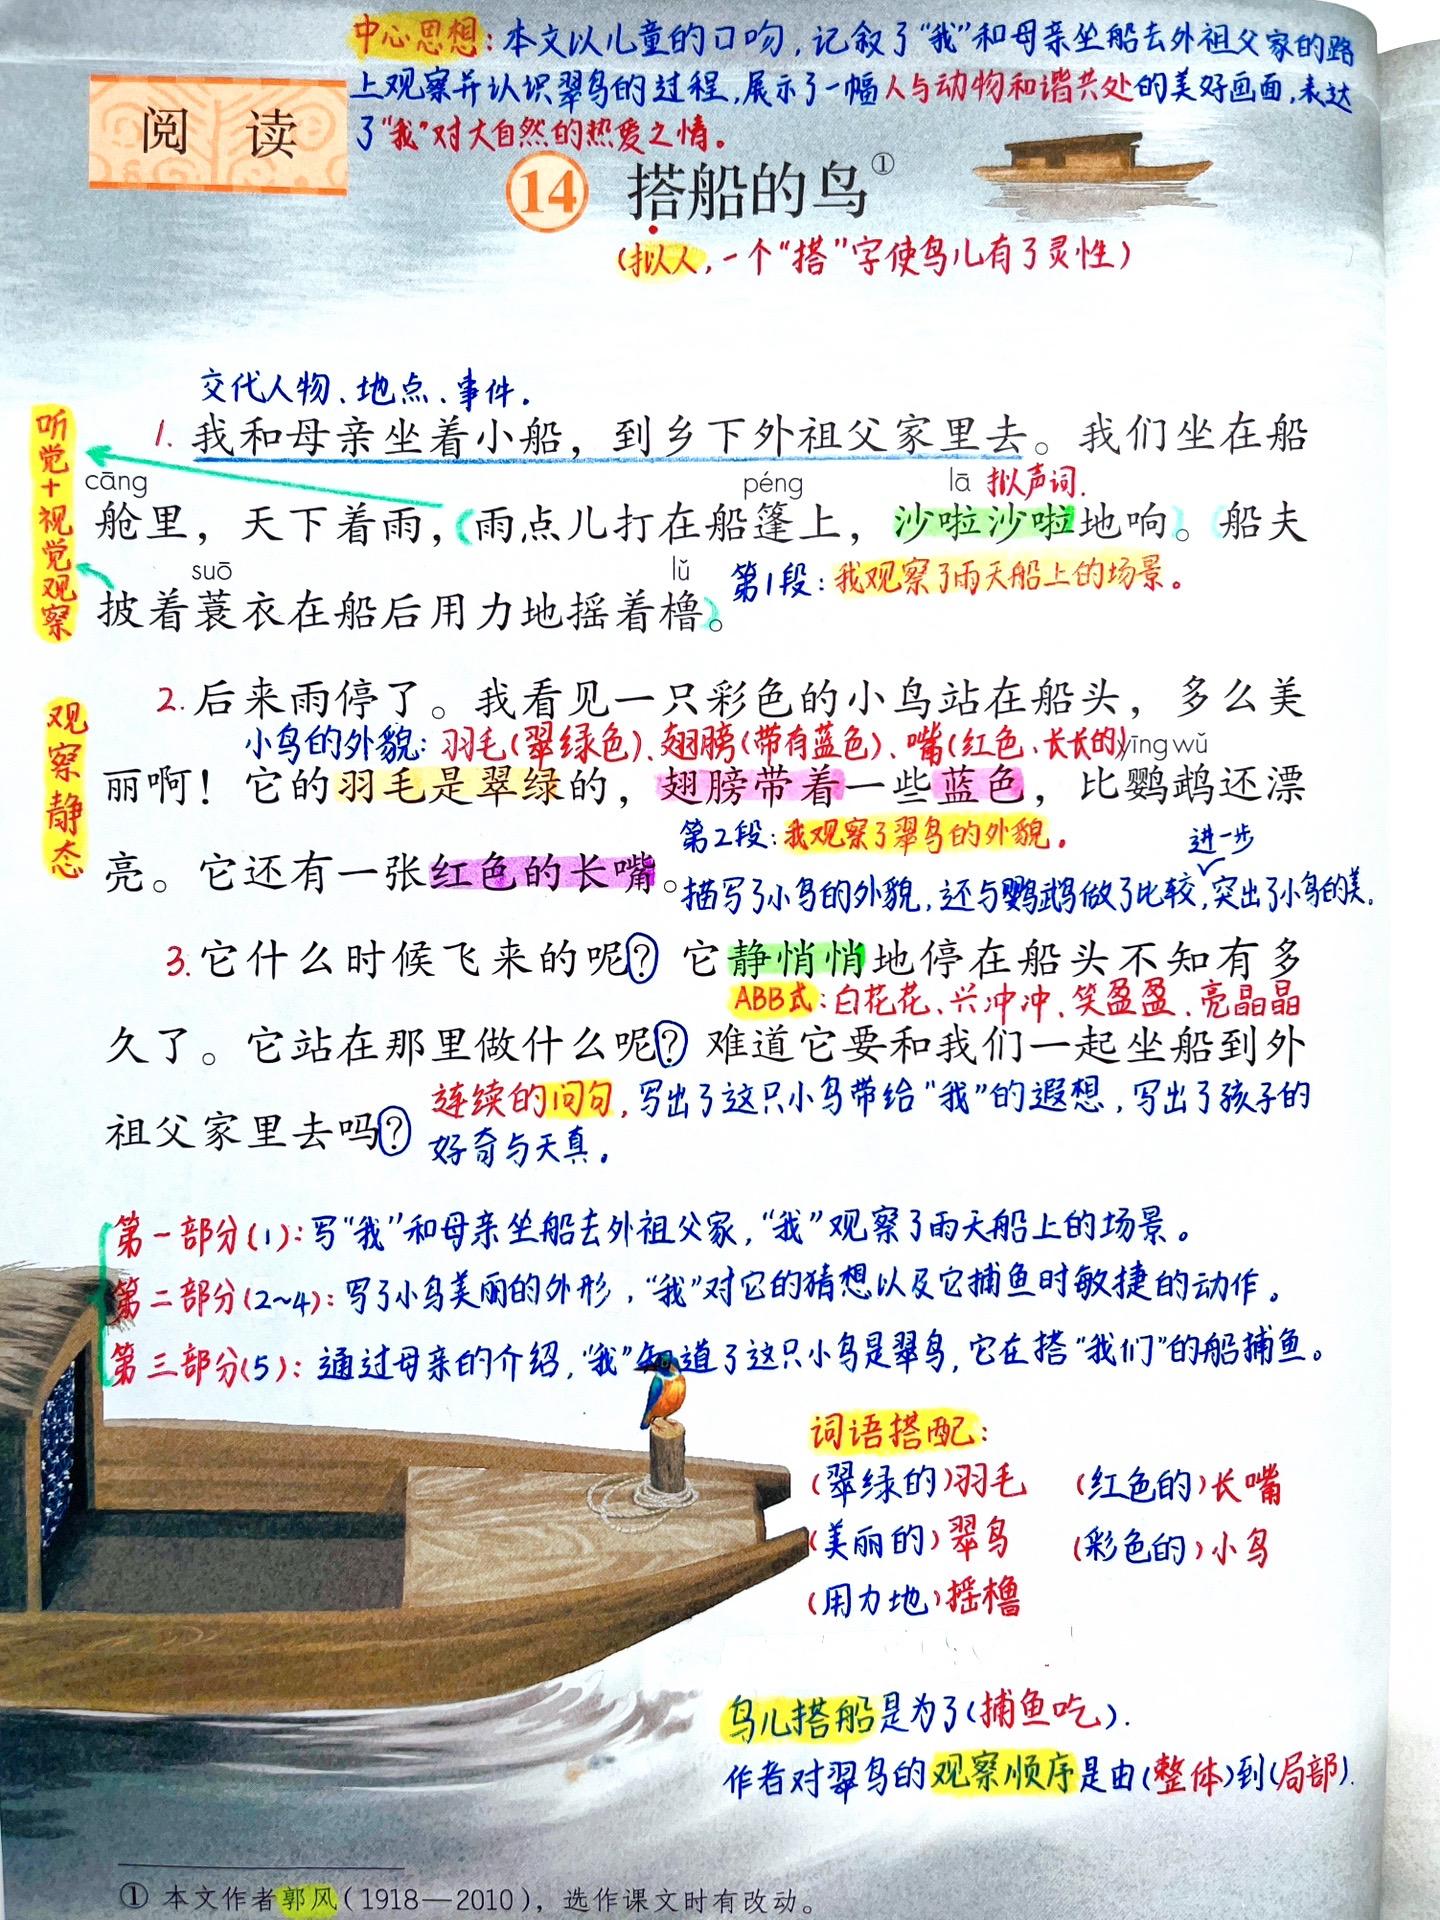 中心思想：本文以儿童的口吻，记叙了“我”和母亲坐船去外祖父家的路
上观察并认识翠鸟的过程，展示了一幅人与动物和谐共处的美好画面，表达
了“我”对大自然的热爱之情。
阅 读
14 搭船的鸟①
（拟人，一个“搭”字使鸟儿有了灵性）
交代人物、地点、事件.
听觉+视觉观察
1. 我和母亲坐着小船，到乡下外祖父家里去。我们坐在船
cāng péng lā 拟声词.
舱里，天下着雨，（雨点儿打在船篷上，沙啦沙啦地响）。（船夫
suō lǔ 第1段：我观察了雨天船上的场景。
披着蓑衣在船后用力地摇着橹）。
观察静态
2. 后来雨停了。我看见一只彩色的小鸟站在船头，多么美
小鸟的外貌：羽毛（翠绿色）、翅膀（带有蓝色）、嘴（红色、长长的） yīng wǔ
丽啊！它的羽毛是翠绿的，翅膀带着一些蓝色，比鹦鹉还漂
第2段：我观察了翠鸟的外貌。 进一步
亮。它还有一张红色的长嘴。
描写了小鸟的外貌，还与鹦鹉做了比较，突出了小鸟的美.
3. 它什么时候飞来的呢？它静悄悄地停在船头不知有多
ABB式：白花花、兴冲冲、笑盈盈、亮晶晶
久了。它站在那里做什么呢？难道它要和我们一起坐船到外
连续的问句，写出了这只小鸟带给“我”的遐想，写出了孩子的
祖父家里去吗？
好奇与天真。
第一部分（1）：写“我”和母亲坐船去外祖父家，“我”观察了雨天船上的场景。
第二部分（2~4）：写了小鸟美丽的外形，“我”对它的猜想以及它捕鱼时敏捷的动作。
第三部分（5）：通过母亲的介绍，“我”知道了这只小鸟是翠鸟，它在搭“我们”的船捕鱼。
词语搭配：
（翠绿的）羽毛 （红色的）长嘴
（美丽的）翠鸟 （彩色的）小鸟
（用力地）摇橹
鸟儿搭船是为了（捕鱼吃）.
作者对翠鸟的观察顺序是由（整体）到（局部）.
① 本文作者郭风（1918—2010），选作课文时有改动。